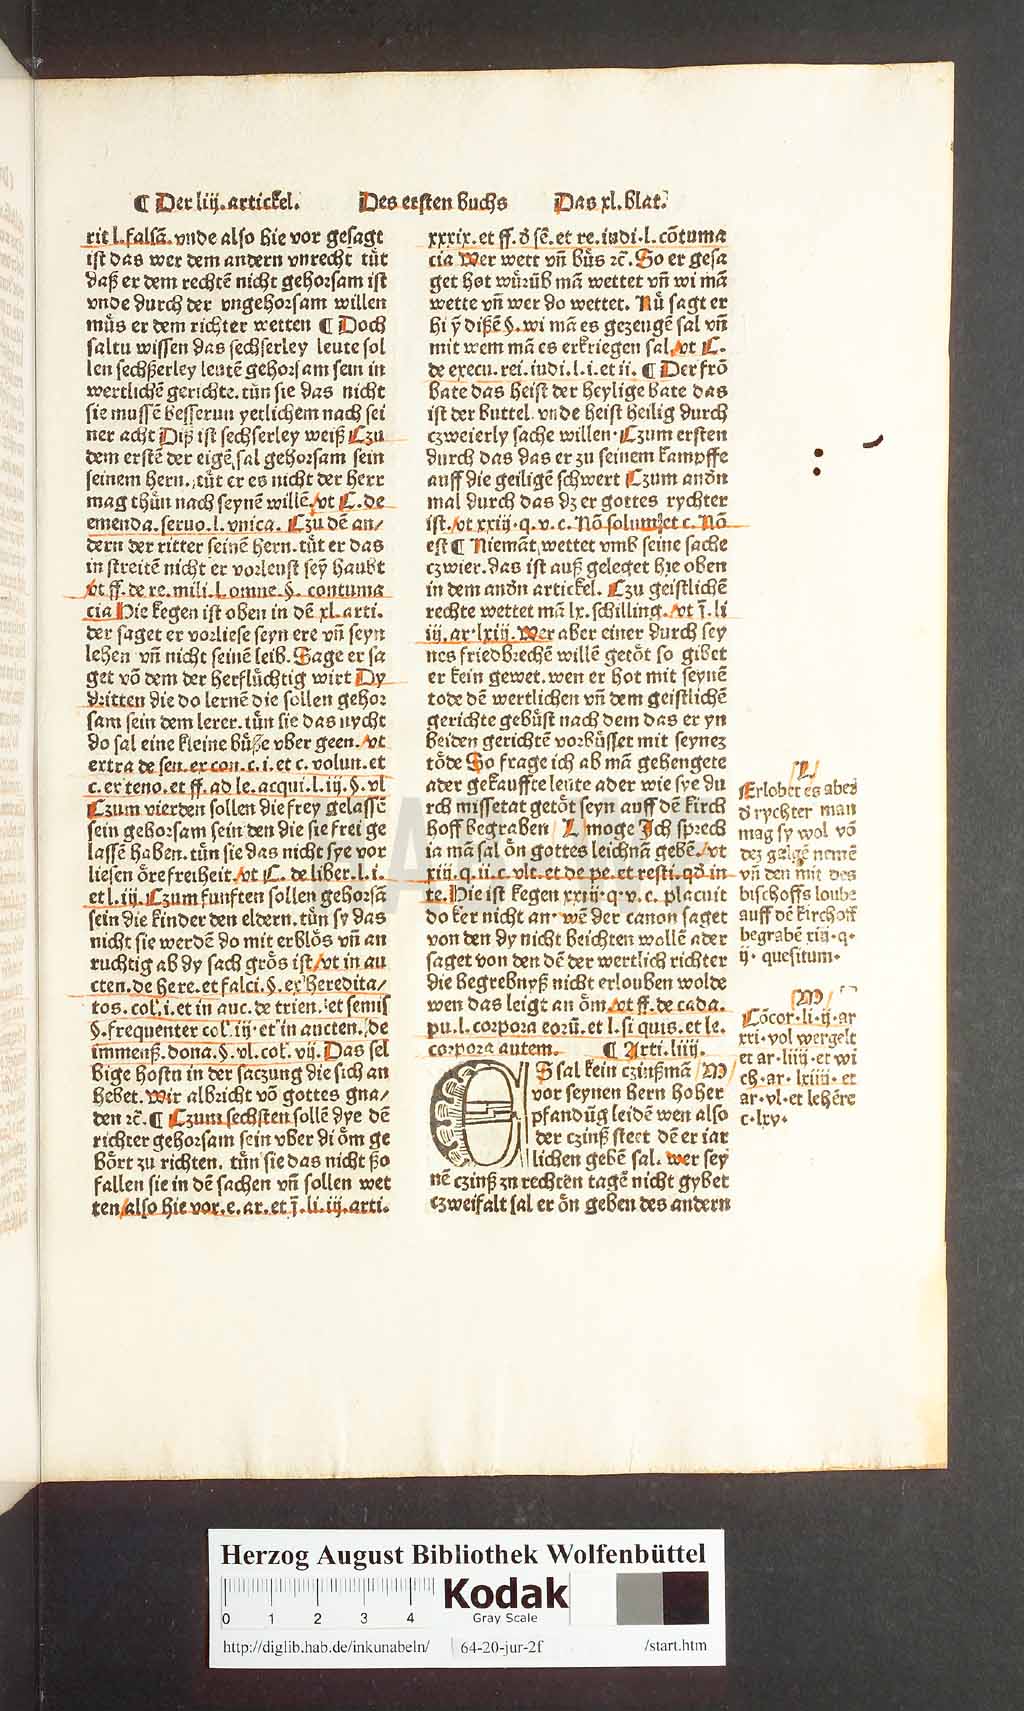 ¶ Der liij. artickel. Des ersten buchs Das xl. blat.
rit l. falsā. vnde also hie vor gesagt
ist das wer dem andern vnrecht tůt
daß er dem rechtē nicht gehorsam ist
vnde durch der vngehorsam willen
můs er dem richter wetten ¶ Doch
saltu wissen das sechserley leute sol
len sechßerley leutē gehorsam sein in
wertlichē gerichte. tůn sie das nicht
sie mussē besserun yetlichem nach sei
ner acht Diß ist sechserley weiß Czu
dem erstē der eigē sal gehorsam sein
seinem hern. tůt er es nicht der herr
mag thůn nach seynē willē. vt C. de
emenda. seruo. l. vnica. Czu dē an/
dern der ritter seinē hern. tůt er das
in streitē nicht er vorleust sey haubt
vt ff. de re. mili. l. omne. §. contuma
cia Hie kegen ist oben in dē xl. arti.
der saget er vorliese seyn ere vñ seyn
lehen vñ nicht seinē leib. Sage er sa
get vō dem der herflůchtig wirt Dy
dritten die do lernē die sollen gehor
sam sein dem lerer. tůn sie das nycht
do sal eine kleine bůße vber geen. vt
extra de sen. ex con. c. i. et c. volun. et
c. ex teno. et ff. ad le. acqui. l. iij. §. vl
Czum vierden sollen die frey gelassē
sein gehorsam sein den die sie frei ge
lassē haben. tůn sie das nicht sye vor
liesen öre freiheit. vt C. de liber. l. i.
et l. iij. Czum funften sollen gehorsā
sein die kinder den eldern. tůn sy das
nicht sie werdē do mit erblös vñ an
ruchtig ab dy sach grös ist vt in au
cten. de here. et falci. §. ex hereditα/
tos. col. i. et in auc. de trien. et semis
§. frequenter col. iij. et in aucten. de
immenß. dona. §. vl. col. vij. Das sel
bige hostu in der saczung die sich an
hebet. Wir albricht vō gottes gna/
den rc̄. ¶ Czum sechsten sollē dye dē
richter gehorsam sein vber di öm ge
bört zu richten. tůn sie das nicht ßo
fallen sie in dē sachen vñ sollen wet
ten also hie vor. e. ar. et j̄. li. iij. arti.
xxxix. et ff. d̄ sē. et re. iudi. l. cōtuma
cia Wer wett vñ bůs rc̄. So er gesa
get hot würüb mā wettet vñ wi mā
wette vñ wer do wettet. Nů sagt er
hi ȳ dißē §. wi mā es gezeugē sal vñ
mit wem mā es erkriegen sal. vt C.
de execu. rei. iudi. l. i. et ii. ¶ Der frō
bate das heist der heylige bate das
ist der buttel. vnde heist heilig durch
czweierly sache willen. Czum ersten
durch das das er zu seinem kampffe
auff die geiligē schwert Czum andn
mal durch das dz er gottes rychter
ist. vt xxiij. q. v. c. Nō solum et c. Nō
est ¶ Niemāt wettet vmb seine sache
czwier. das ist auß geleget hye oben
in dem andn artickel. Czu geistlichē
rechte wettet mā lx. schilling. vt j̄. li
iij. ar. lxiij. Wer aber einer durch sey
nes friedbrechē willē getöt so gibet
er kein gewet. wen er hot mit seynē
tode dē wertlichen vñ dem geistlichē
gerichte gebůst nach dem das er yn
beiden gerichtē vorbůsset mit seynez
töde So frage ich ab mā gehengete
ader gekauffte leute ader wie sye du
rch missetat getöt seyn auff dē kirch
hoff begraben L moge Ich sprech
ia mā sal ön gottes leichnā gebē. vt
xiij. q. ii. c. vlt. et de pe. et resti. qd in
re. Hie ist kegen xxiij. q. v. c. placuit
do ker nicht an. wē der canon saget
von den dy nicht beichten wollē ader
saget von den dē der wertlich richter
die begrebnyß nicht erlouben wolde
wen das leigt an öm. vt ff. de cada.
pu. l. corpora eorū. et l. si quis. et le.
corpora autem. ¶ Arti. liiij.
ES sal kein czinßmā M
vor seynen hern hoher
pfandūg leidē wen also
der czinß steet dē er iar
lichen gebē sal. wer sey
nē czinß zu rechten tagē nicht gybet
czweifalt sal er ön geben des andern
L
Erlobet es abes
d̄ rychter man
mag sy wol vō
dez galgē nemē
vñ den mit des
bischoffs loube
auff dē kirchoff
begrabē xiij. q.
ij. quesitum.
M
Cōcor. li. ij. ar
xxi. vol wergelt
et ar. liiij. et wi
ch. ar. lxiiij. et
ar. vl. et lehēre
c. lxv.
Herzog August Bibliothek Wolfenbüttel
0 1 2 3 4
Kodak
Gray Scale
http://diglib.hab.de/inkunabeln/ 64-20-jur-2f /start.htm